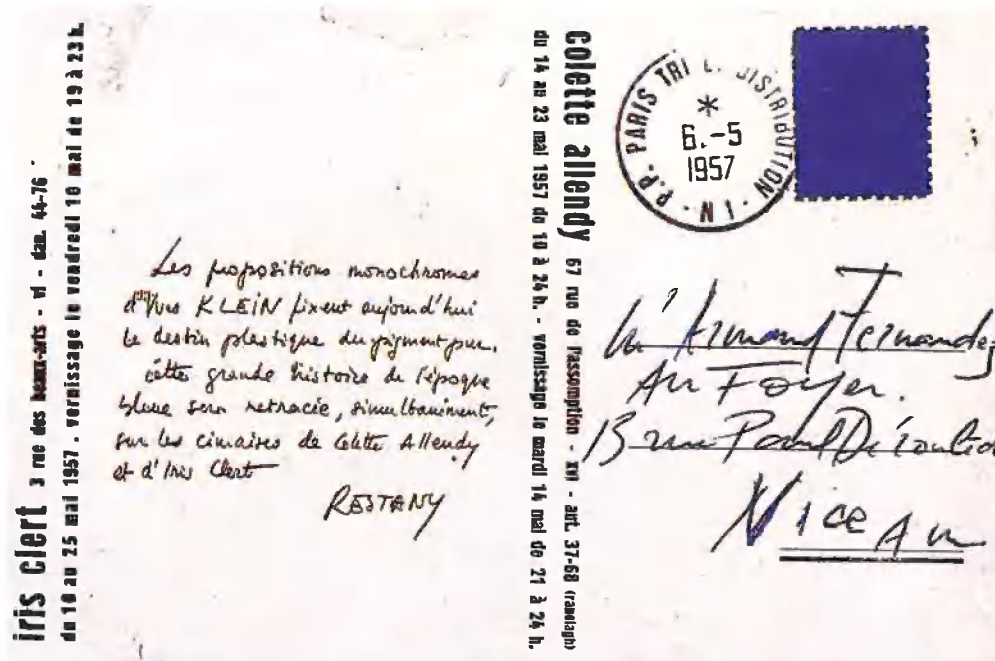 iris clert 3 rue des beaux-arts - vi - dan. 44-76
du 10 au 25 mai 1957 . vernissage le vendredi 10 mai de 19 à 23 h.
Les propositions monochromes
d'Yves KLEIN fixent aujourd'hui
le destin plastique du pigment pur.
cette grande histoire de l'époque
bleue sera retracée, simultanément,
sur les cimaises de Colette Allendy
et d'Iris Clert
RESTANY
colette allendy 67 rue de l'assomption - xvi - aut. 37-68 (ranelagh)
du 14 au 23 mai 1957 de 10 à 24 h. - vernissage le mardi 14 mai de 21 à 24 h.
P.P. PARIS TRI DISTRIBUTION - I N -
*
6.-5
1957
Armand Fernandez
Au Foyer.
13 rue Paul Déroulè
Nice A M